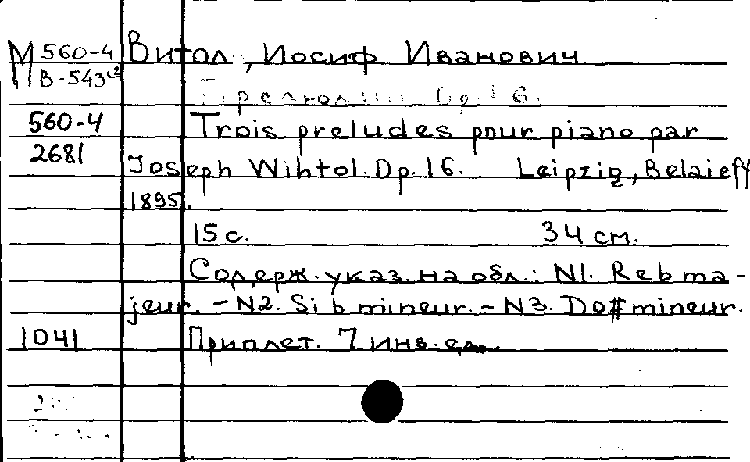 М 560-4 Витол, Иосиф Иванович
В-543
Op. 16.
560-4 Trois preludes pour piano par
2681 Joseph Wihtol. Op. 16. Leipzig, Belaieff
1895.
15 с. 34 см.
Содерж. указ. на обл.: N1. Re b ma-
jeur. - N2. Si b mineur. - N3. Do# mineur.
1041 Приплет. 7 инв. ед.